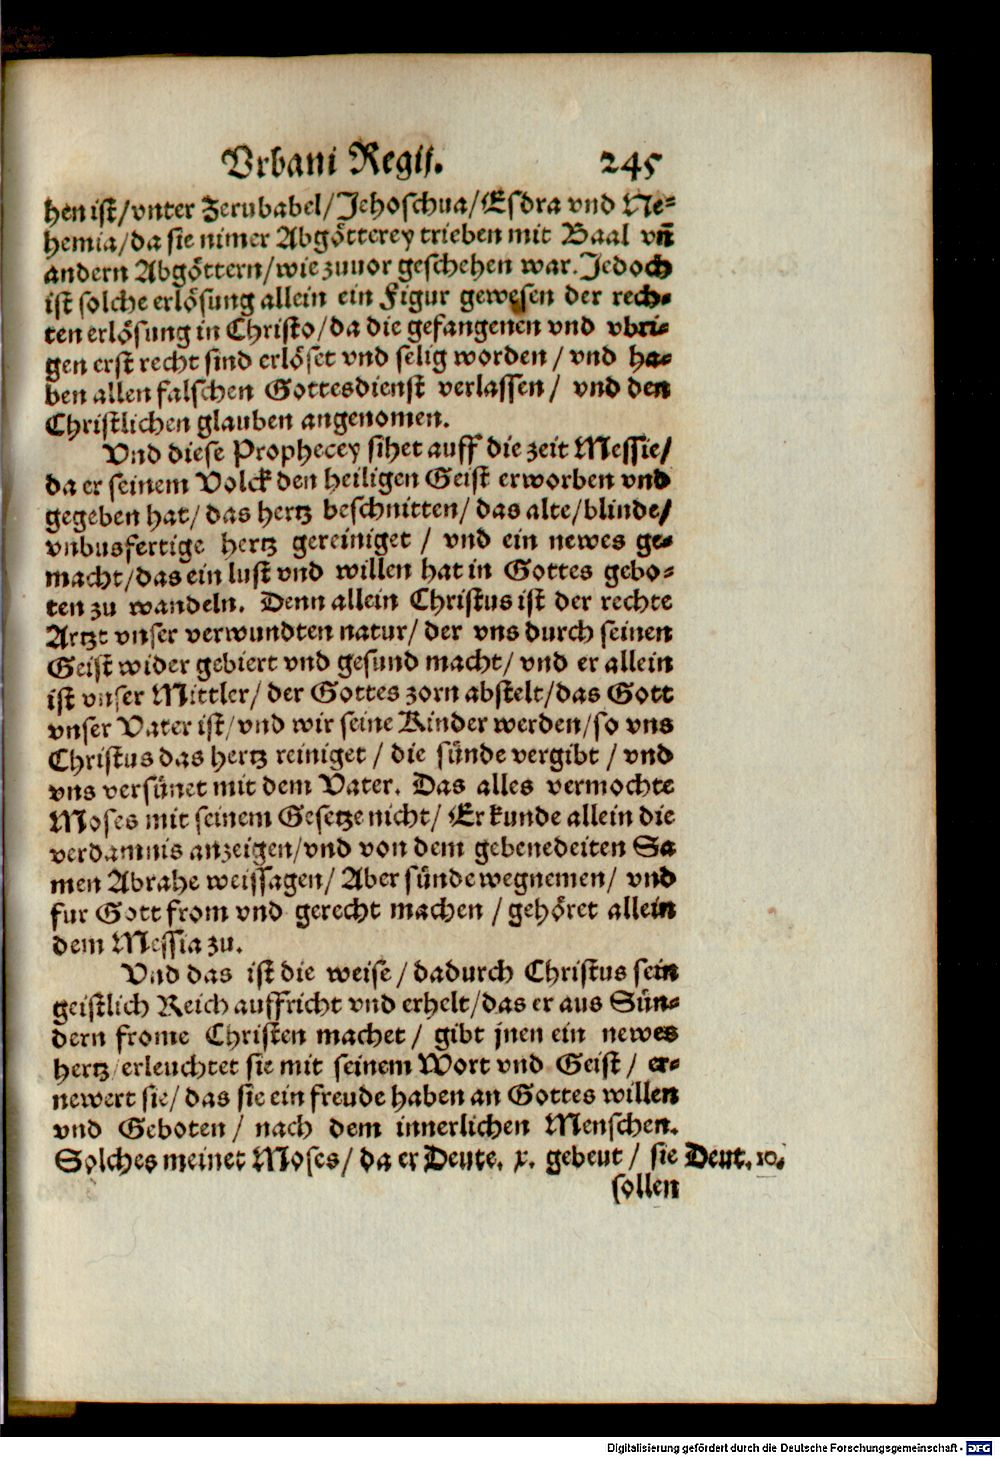 Vrbani Regij. 245
hen ist/vnter Zerubabel/Jehoschua/Esdra vnd Ne-
hemia/da sie nimer Abgötterey trieben mit Baal vñ
andern Abgöttern/wie zuuor geschehen war. Jedoch
ist solche erlösung allein ein Figur gewesen der rech-
ten erlösung in Christo/da die gefangenen vnd vbri-
gen erst recht sind erlöset vnd selig worden/vnd ha-
ben allen falschen Gottesdienst verlassen/ vnd den
Christlichen glauben angenomen.
Vnd diese Prophecey sihet auff die zeit Messie/
da er seinem Volck den heiligen Geist erworben vnd
gegeben hat/ das hertz beschnitten/ das alte/blinde/
vnbusfertige hertz gereiniget / vnd ein newes ge-
macht/das ein lust vnd willen hat in Gottes gebo-
ten zu wandeln. Denn allein Christus ist der rechte
Artzt vnser verwundten natur/ der vns durch seinen
Geist wider gebiert vnd gesund macht/ vnd er allein
ist vnser Mittler/ der Gottes zorn abstelt/das Gott
vnser Vater ist/vnd wir seine Kinder werden/so vns
Christus das hertz reiniget / die sünde vergibt / vnd
vns versünet mit dem Vater. Das alles vermochte
Moses mit seinem Gesetze nicht/ Er kunde allein die
verdamnis anzeigen/vnd von dem gebenedeiten Sa
men Abrahe weissagen/ Aber sünde wegnemen/ vnd
fur Gott from vnd gerecht machen / gehöret allein
dem Messia zu.
Vnd das ist die weise / dadurch Christus sein
geistlich Reich auffricht vnd erhelt/das er aus Sün-
dern frome Christen machet / gibt jnen ein newes
hertz/erleuchtet sie mit seinem Wort vnd Geist / er-
newert sie/ das sie ein freude haben an Gottes willen
vnd Geboten / nach dem innerlichen Menschen.
Solches meinet Moses/ da er Deute. x. gebeut / sie Deut. 10.
sollen
Digitalisierung gefördert durch die Deutsche Forschungsgemeinschaft - DFG